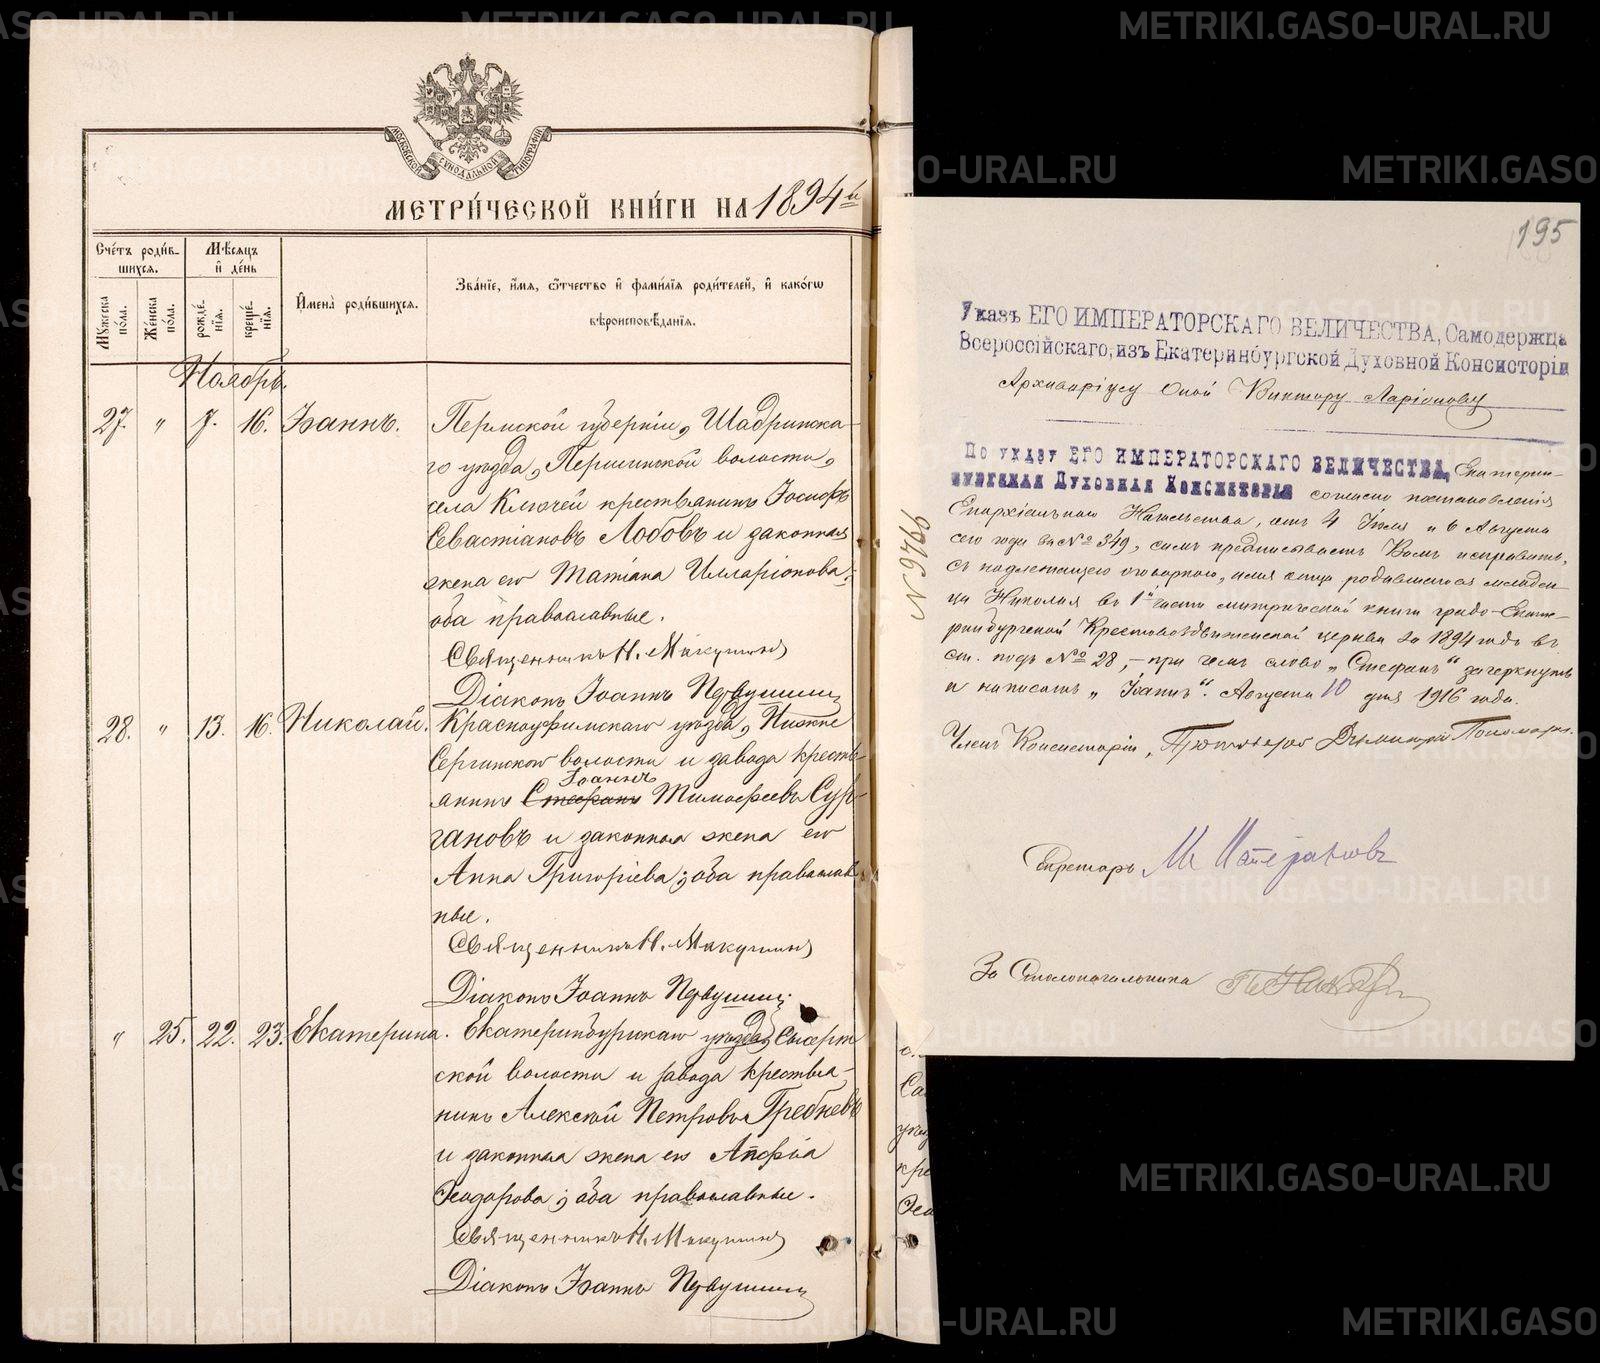 МОСКОВСКОЙ СѴНОДАЛЬНОЙ ТИПОГРАФІИ
МЕТРИ́ЧЕСКОЙ КНИ́ГИ НА 1894 й
Сче́тъ роди́вшихся.
Мѣ́сяцъ и҆ де́нь
И҆мена̀ роди́вшихся.
Зва́нїе, и҆́мя, ѻ҆́тчество и҆ фами́лїя роди́телей, и҆ како́гѡ вѣроисповѣ́данїя.
Мꙋ́жеска по́ла.
Же́нска по́ла.
рожде́нїя.
креще́нїя.
Ноябрь.
27. " 7. 16. Іоаннъ. Пермской губерніи, Шадринска-
го уѣзда, Першинской волости,
села Ключей крестьянинъ Іосифъ
Севастіановъ Лобовъ и законная
жена его Татіана Илларіонова;
оба православные.
Священникъ Н. Макушинъ
Діаконъ Іоаннъ
28. " 13. 16. Николай. Красноуфимскаго уѣзда, Нижне
Сергинской волости и завода кресть-
Іоаннъ
янинъ Стефанъ Тимофеевъ Сур-
гановъ и законная жена его
Анна Григоріева; оба православ
ные.
Священникъ Н. Макушинъ
Діаконъ Іоаннъ
" 25. 22. 23. Екатерина. Екатеринбургскаго уѣзда, Сысерт
ской волости и завода крестья-
нинъ Алексѣй Петровъ Гребневъ
и законная жена его Анфія
Ѳеодорова; оба православные.
Священникъ Н. Макушинъ
Діаконъ Іоаннъ
195
Указъ ЕГО ИМПЕРАТОРСКАГО ВЕЛИЧЕСТВА, Самодержца
Всероссійскаго, изъ Екатеринбургской Духовной Консисторіи
Архиваріусу Оной Виктору Ларіонову
По указу ЕГО ИМПЕРАТОРСКАГО ВЕЛИЧЕСТВА, Екатерин-
бургская Духовная Консисторія согласно постановленія
Епархіальнаго Начальства, отъ 4 Іюля и 6 Августа
сего года за № 349, симъ предписываетъ Вамъ исправить,
съ надлежащею оговоркою, имя отца родившагося младен-
ца Николая въ 1й части метрической книги градо-Екате-
ринбургской Крестовоздвиженской церкви за 1894 годъ въ
ст. подъ № 28, - при чемъ слово „Стефанъ" зачеркнуть
и написать „Іоаннъ". Августа 10 дня 1916 года.
№ 9766
Членъ Консисторіи, Протоіерей Димитрій Пономаревъ.
Секретарь М.
За Столоначальника
METRIKI.GASO-URAL.RU